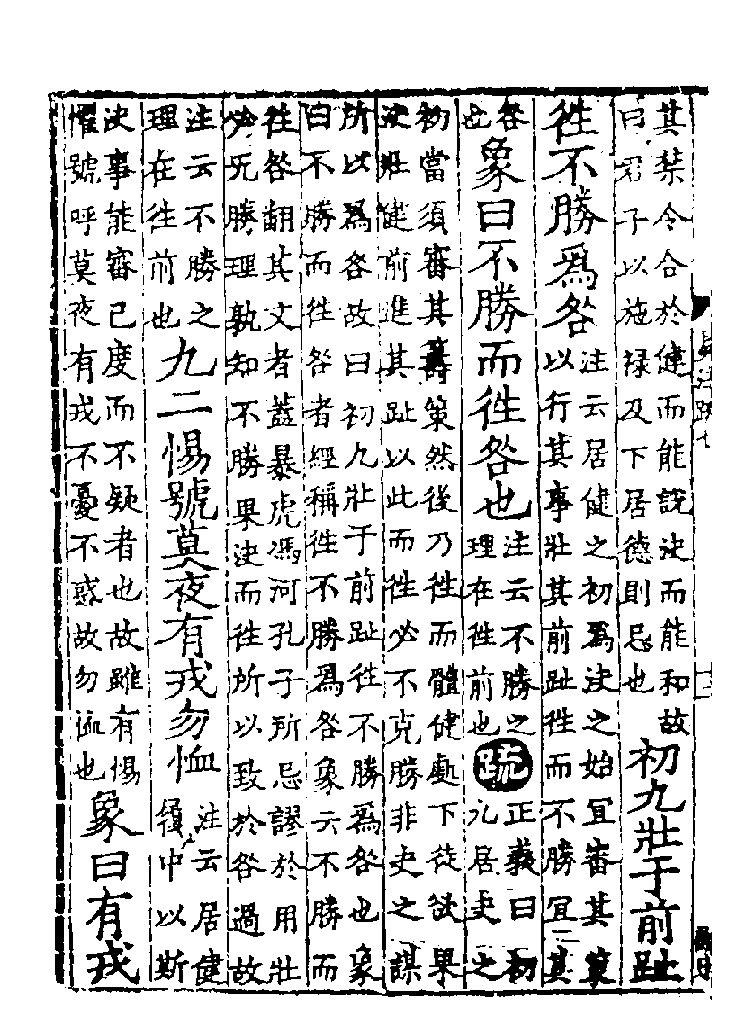 其禁令合於健而能說決而能和故
曰君子以施禄及下居德則忌也
初九壯于前趾
徃不勝爲咎
注云居健之初爲決之始宜審其筞
以行其事壯其前趾徃而不勝宜其
咎
也
象曰不勝而徃咎也
注云不勝之
理在徃前也
疏
正義曰初
九居夬之
初當須審其籌策然後乃徃而體健處下徒欲果
決壯健前進其趾以此而徃必不克勝非夬之謀
所以爲咎故曰初九壯于前趾徃不勝爲咎也象
曰不勝而徃咎者經稱徃不勝爲咎象云不勝而
徃咎翻其文者蓋暴虎馮河孔子所忌謬於用壯
必无勝理孰知不勝果決而徃所以致於咎過故
注云不勝之
理在徃前也
九二惕號莫夜有戎勿恤
注云居健
履中以斯
決事能審己度而不疑者也故雖有惕
懼號呼莫夜有戎不憂不惑故勿恤也
象曰有戎